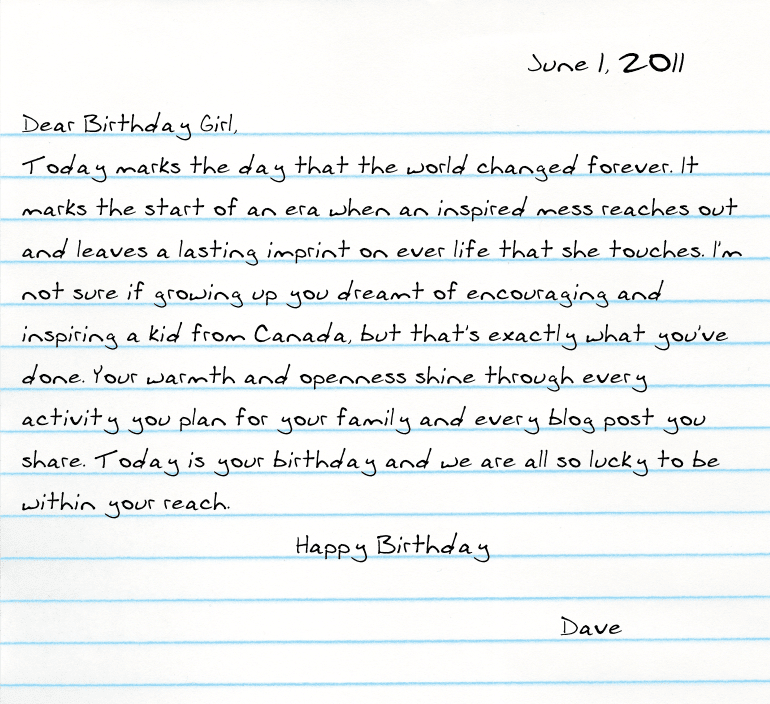 June 1, 2011
Dear Birthday Girl,
Today marks the day that the world changed forever. It
marks the start of an era when an inspired mess reaches out
and leaves a lasting imprint on ever life that she touches. I'm
not sure if growing up you dreamt of encouraging and
inspiring a kid from Canada, but that's exactly what you've
done. Your warmth and openness shine through every
activity you plan for your family and every blog post you
share. Today is your birthday and we are all so lucky to be
within your reach.
Happy Birthday
Dave